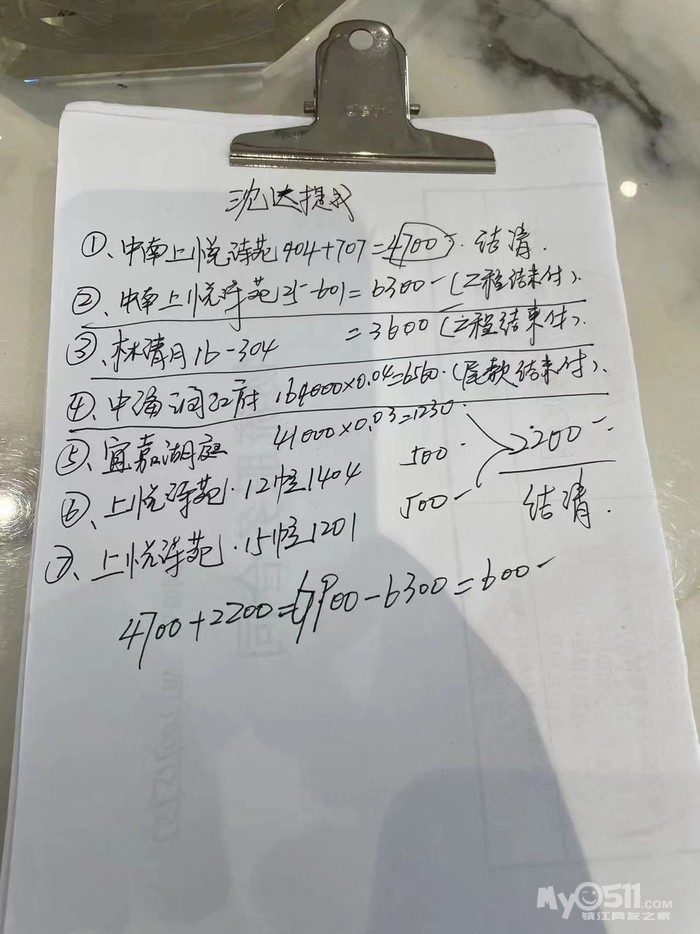 沈达提我
①、中南上悦诗苑904+707=4700- 结清.
②、中南上悦诗苑25-601=6300-(工程结束付).
③、林清月16-304 =3600(工程结束付).
④、中海润江府 164000×0.04=6560.(尾款结束付).
⑤、宜嘉湖庭 41000×0.03=1230.
⑥、上悦诗苑.12幢1404 500- 2200-
⑦、上悦诗苑.15幢1201 500- 结清.
4700+2200=6900-6300=600-
My0511.COM
镇江网友之家